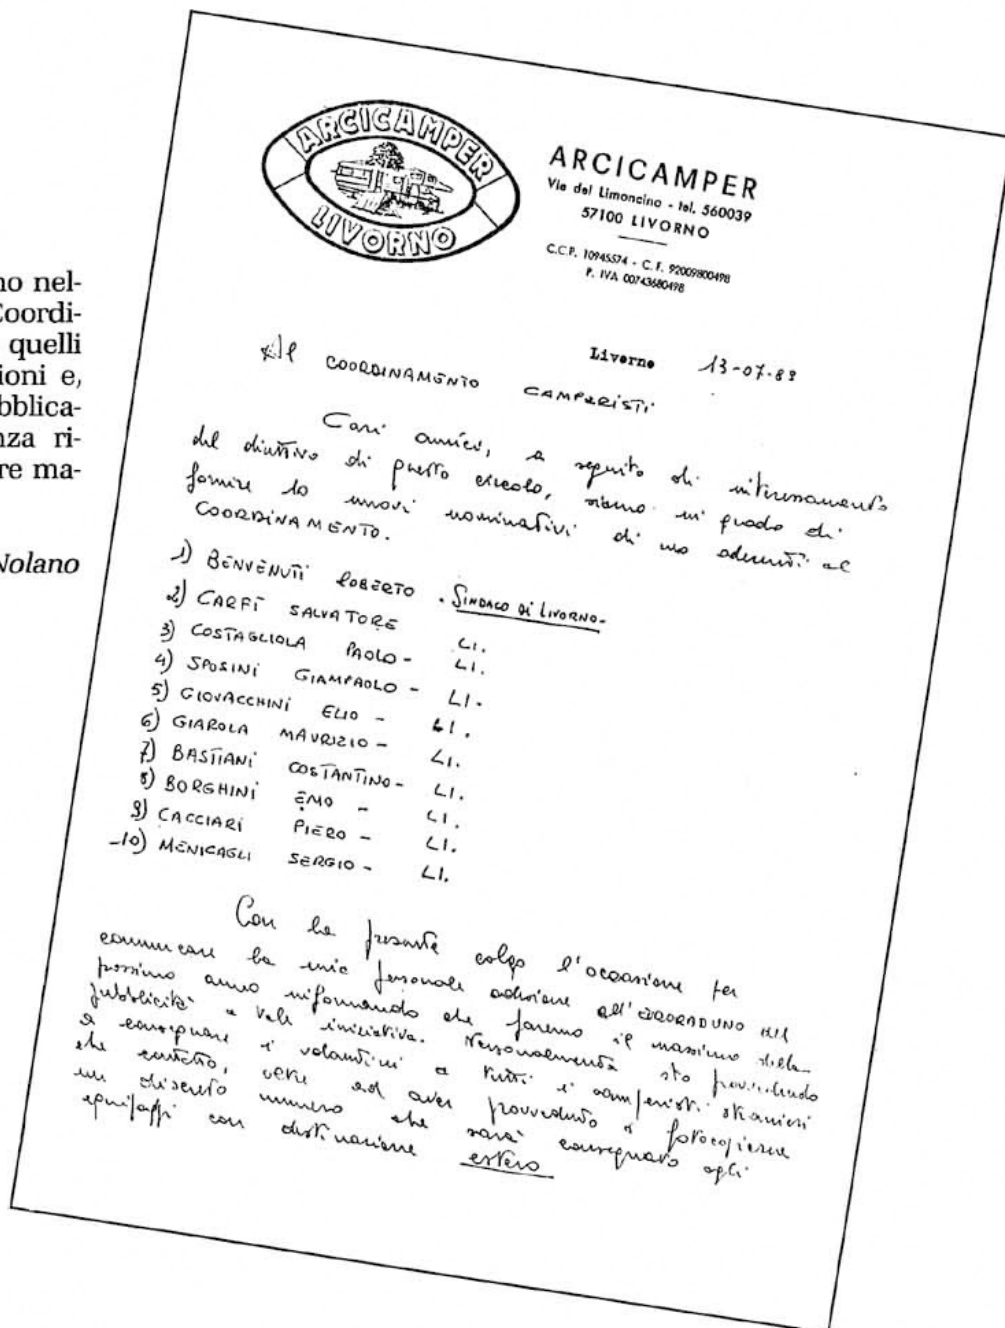 no nel-
Coordi-
quelli
ioni e,
bblica-
nza ri-
re ma-
Nolano
ARCICAMPER
LIVORNO
ARCICAMPER
Via del Limoncino - tel. 560039
57100 LIVORNO
C.C.P. 10945574 - C.F. 92009800498
P. IVA 00743680498
Livorno 13-07-89
Al COORDINAMENTO CAMPERISTI
Cari amici, a seguito di interessamento
del direttivo di questo circolo, siamo in grado di
fornire 10 nuovi nominativi di aderenti al
COORDINAMENTO.
1) BENVENUTI ROBERTO - SINDACO DI LIVORNO-
2) CARFÌ SALVATORE LI.
3) COSTAGLIOLA PAOLO - LI.
4) SPOSINI GIAMPAOLO - LI.
5) GIOVACCHINI ELIO - LI.
6) GIAROLA MAURIZIO - LI.
7) BASTIANI COSTANTINO - LI.
8) BORGHINI EMO - LI.
9) CACCIARI PIERO - LI.
10) MENICAGLI SERGIO - LI.
Con la presente colgo l'occasione per
comunicare la mia personale adesione all'EURORADUNO del
prossimo anno informando che faremo il massimo della
pubblicità a tale iniziativa. Personalmente sto provvedendo
a consegnare i volantini a tutti i camperisti stranieri
che contatto, oltre ad aver provveduto a fotocopiarne
un discreto numero che sarà consegnato agli
equipaggi con destinazione estero